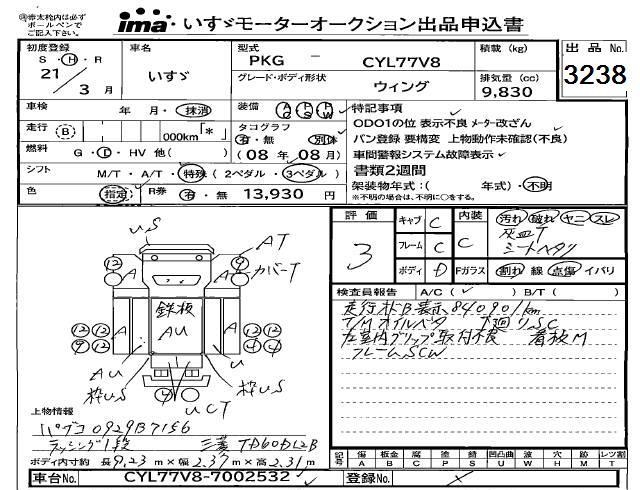 ㊟赤太枠内は必ず
ボールペンで
ご記入下さい。
ima いすゞモーターオークション出品申込書
初度登録 車名 型式 積載 (kg) 出品No.
S・H・R
21 3月
いすゞ
PKG - CYL77V8
グレード・ボディ形状
ウィング
排気量 (cc)
9,830
3238
車検 年 月・抹消
装備 AC PS PW
特記事項
走行 B 000km「*」
タコグラフ
有・無 別体
(08年08月)
ODO1の位 表示不良 メーター改ざん
バン登録 要構変 上物動作未確認(不良)
車間警報システム故障表示
書類2週間
燃料 G・D・HV 他( )
シフト M/T・A/T・特殊 (2ペダル/3ペダル)
架装物年式:( 年式)・不明
※不明の場合は、不明に○をする。
色 指定 R券 有・無 13,930 円
評価 3
キャブ C 内装 汚れ 破れ ヤニ スレ
灰皿T
シートヘタリ
フレーム C C
ボディ D Fガラス 割れ 線 点傷 イバリ
検査員報告 A/C( ) B/T( )
走行メーターB表示840901km
T/Mオイルベタ 下廻りSC
左室内グリップ取付不良 看板M
フレームSCW
US
AT
カバーT
12 9
A A
鉄板
AU
A
12 12 12 12
9 12 4 4
AU
U
枠US
枠US
UCT
上物情報
パブコ 0929B7156
ラッシング1段 三菱 TD60D12B
ボディ内寸約 長9.23m×幅2.37m×高2.31m
記号 傷A 板金B 腐C 塗P 錆S 凹凸曲U 波W 穴H 跡M 跡M レンズ割T
車台No. CYL77V8-7002532
登録No.